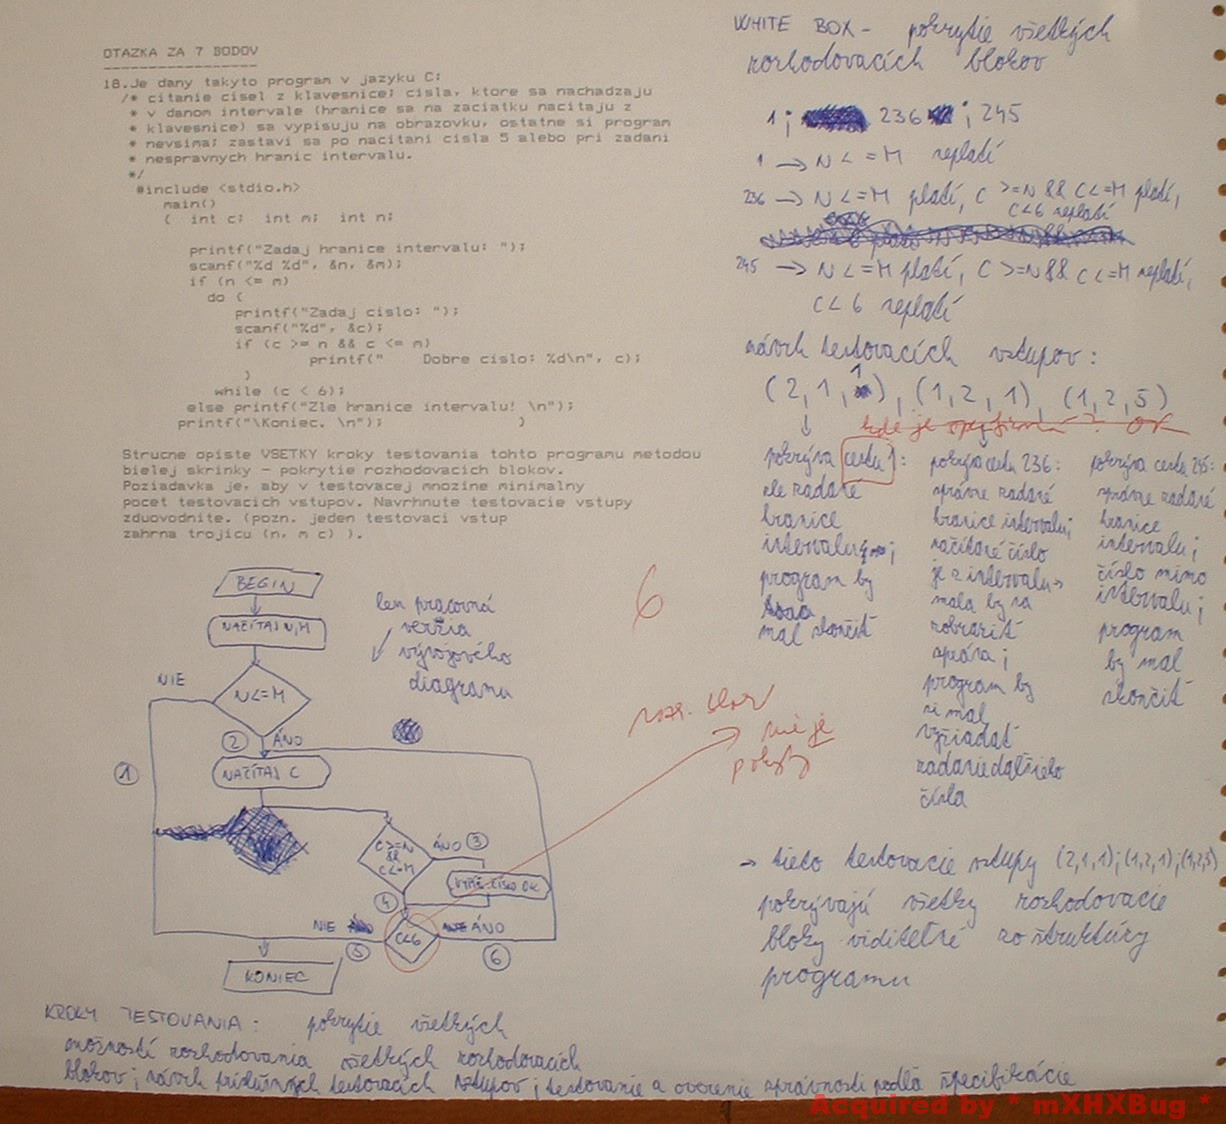 OTAZKA ZA 7 BODOV
18.Je dany takyto program v jazyku C:
/* citanie cisel z klavesnice; cisla, ktore sa nachadzaju
* v danom intervale (hranice sa na zaciatku nacitaju z
* klavesnice) sa vypisuju na obrazovku, ostatne si program
* nevsima; zastavi sa po nacitani cisla 5 alebo pri zadani
* nespravnych hranic intervalu.
*/
#include <stdio.h>
main()
{ int c; int m; int n;
printf("Zadaj hranice intervalu: ");
scanf("%d %d", &n, &m);
if (n <= m)
do {
printf("Zadaj cislo: ");
scanf("%d", &c);
if (c >= n && c <= m)
printf(" Dobre cislo: %d\n", c);
}
while (c < 6);
else printf("Zle hranice intervalu! \n");
printf("\Koniec. \n"); }
Strucne opiste VSETKY kroky testovania tohto programu metodou
bielej skrinky - pokrytie rozhodovacich blokov.
Poziadavka je, aby v testovacej mnozine minimalny
pocet testovacich vstupov. Navrhnute testovacie vstupy
zduovodnite. (pozn. jeden testovaci vstup
zahrna trojicu (n, m c) ).
BEGIN
NAČÍTAJ N,M
N<=M
NIE
ÁNO
1
2
NAČÍTAJ C
C>=N
&&
C<=M
ÁNO 3
VYPÍŠ ČÍSLO OK
4
NIE
C<6
ÁNO
5
6
KONIEC
len pracovná
verzia
vývojového
diagramu
KROKY TESTOVANIA: pokrytie všetkých
možností rozhodovania všetkých rozhodovacích
blokov; návrh príslušných testovacích vstupov; testovanie a overenie správnosti podľa špecifikácie
WHITE BOX - pokrytie všetkých
rozhodovacích blokov
1; 236; 245
1 → N<=M neplatí
236 → N<=M platí, C>=N && C<=M platí,
C<6 neplatí
245 → N<=M platí, C>=N && C<=M neplatí,
C<6 neplatí
návrh testovacích vstupov:
(2,1,1), (1,2,1), (1,2,5)
kde je ? OK
pokrýva cestu 1:
zle zadané
hranice
intervalu;
program by
mal skončiť
pokrýva cestu 236:
správne zadané
hranice intervalu;
načítané číslo
je z intervalu →
mala by sa
zobraziť
správa;
program by
si mal
vyžiadať
zadanie ďalšieho
čísla
pokrýva cestu 245:
správne zadané
hranice
intervalu;
číslo mimo
intervalu;
program
by mal
skončiť
6
roz. blok
nie je
pokrytý
→ tieto testovacie vstupy (2,1,1);(1,2,1);(1,2,5)
pokrývajú všetky rozhodovacie
bloky viditeľné zo štruktúry
programu
Acquired by * mXHXBug *